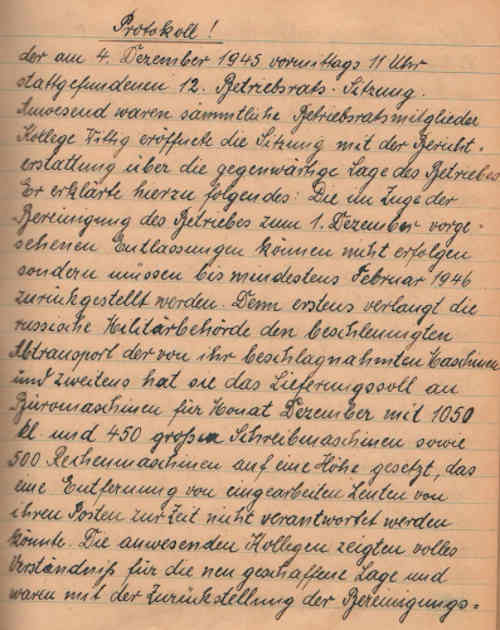 Protokoll!
der am 4. Dezember 1945 vormittags 11 Uhr
stattgefundenen 12. Betriebsrats-Sitzung.
Anwesend waren sämmtliche Betriebsratsmitglieder
Kollege eröffnete die Sitzung mit der Bericht-
erstattung über die gegenwärtige Lage des Betriebes
Er erklärte hierzu folgendes: Die im Zuge der
Bereinigung des Betriebes zum 1. Dezember vorge-
sehenen Entlassungen können nicht erfolgen
sondern müssen bis mindestens Februar 1946
zurückgestellt werden. Denn erstens verlangt die
russische Militärbehörde den beschleunigten
Abtransport der von ihr beschlagnahmten Maschinen
und zweitens hat sie das Lieferungssoll an
Büromaschinen für Monat Dezember mit 1050
kl. und 450 großen Schreibmaschinen sowie
500 Rechenmaschinen auf eine Höhe gesetzt, das
eine Entfernung von eingearbeiten Leuten von
ihren Posten zur Zeit nicht verantwortet werden
könnte. Die anwesenden Kollegen zeigten volles
Verständniß für die neu geschaffene Lage und
waren mit der Zurückstellung der Bereinigungs-